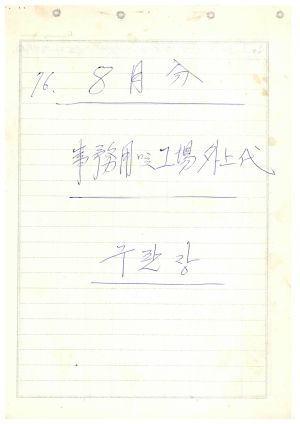 76. 8月分
事務用및工場外上代
구판장